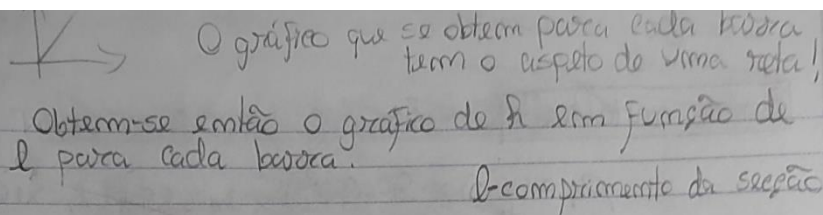 O gráfico que se obtem para cada barra
tem o aspeto de uma reta!
Obtem-se então o gráfico de h em função de
l para cada barra.
l-comprimento da secção